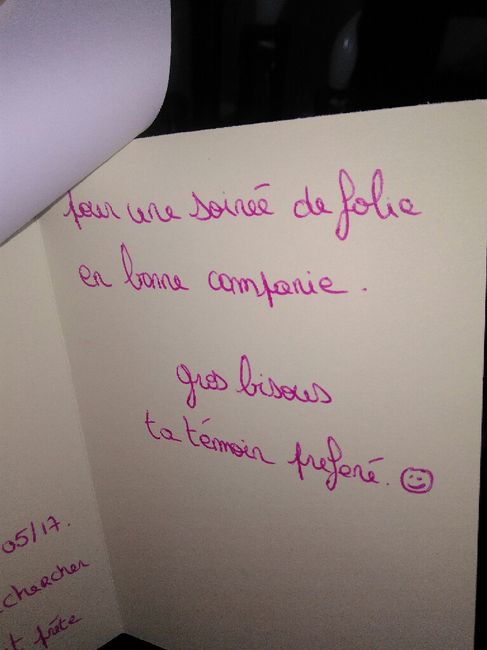 05/17.
chercher
t prête
pour une soirée de folie
en bonne companie.
gros bisous
ta témoin preferé. ☺